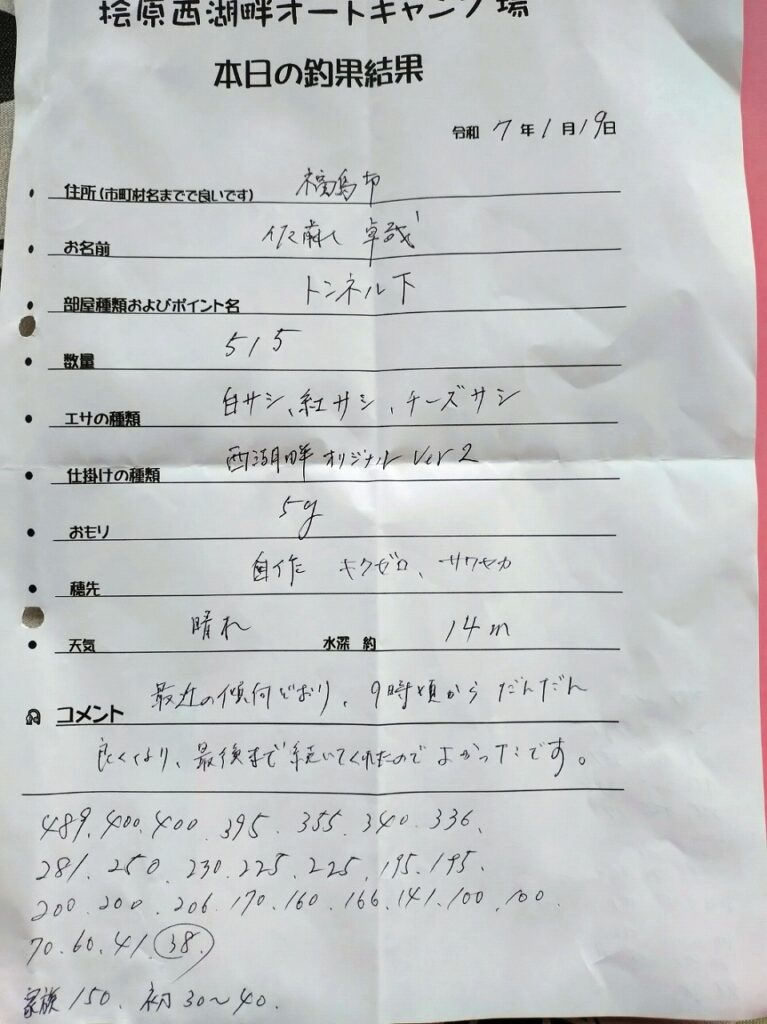 桧原西湖畔オートキャンプ場
本日の釣果結果
令和 7年1月19日
住所(市町村名までで良いです) 福島市
お名前 佐藤 卓哉
部屋種類およびポイント名 トンネル下
数量 515
エサの種類 白サシ、紅サシ、チーズサシ
仕掛けの種類 西湖畔オリジナル Ver2
おもり 5g
穂先 自作 キクゼロ、サワヤカ
天気 晴れ 水深 約 14m
コメント 最近の傾向どおり、9時頃からだんだん
良くなり、最後まで続いてくれたのでよかったです。
489.400.400.395.355.340.336.
281.250.230.225.225.195.195.
200.200.206.170.160.166.141.100.100.
70.60.41.38.
家族150.初30〜40.